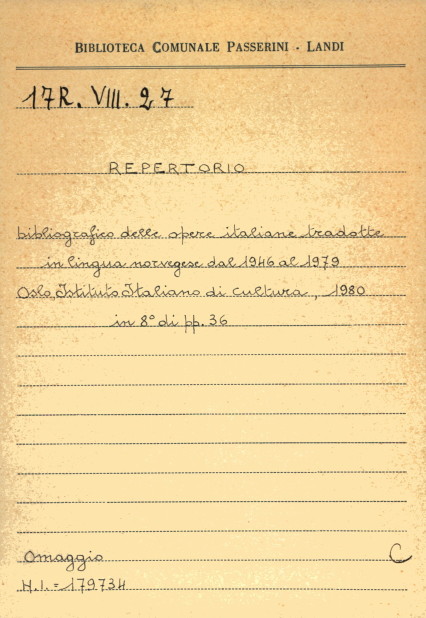 BIBLIOTECA COMUNALE PASSERINI - LANDI
17R. VIII. 27
REPERTORIO
bibliografico delle opere italiane tradotte
in lingua norvegese dal 1946 al 1979
Oslo, Istituto Italiano di Cultura, 1980
in 8° di pp. 36
Omaggio C
N.I. = 179734